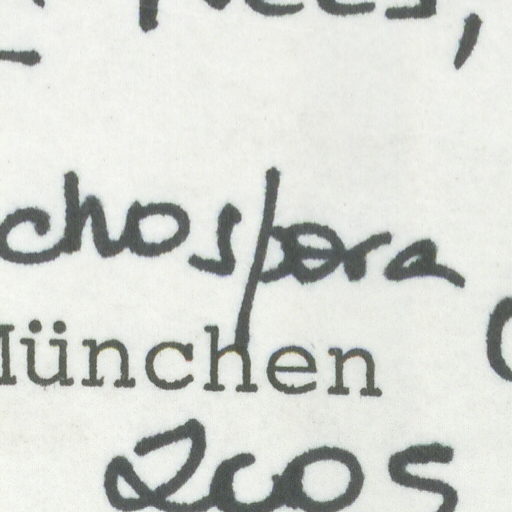 chospora
München
2005